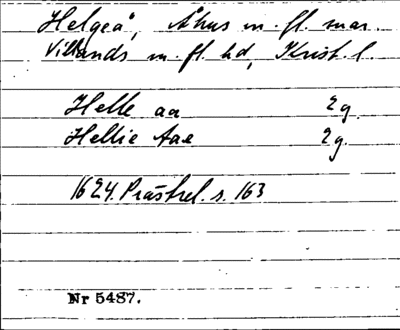 Helgeå, Åhus m. fl. snr
Villands m. fl. hd, Krist. l.
Helle aa 2 g.
Hellie Aae 2 g.
1624. Prästrel. s. 163
Nr 5487.